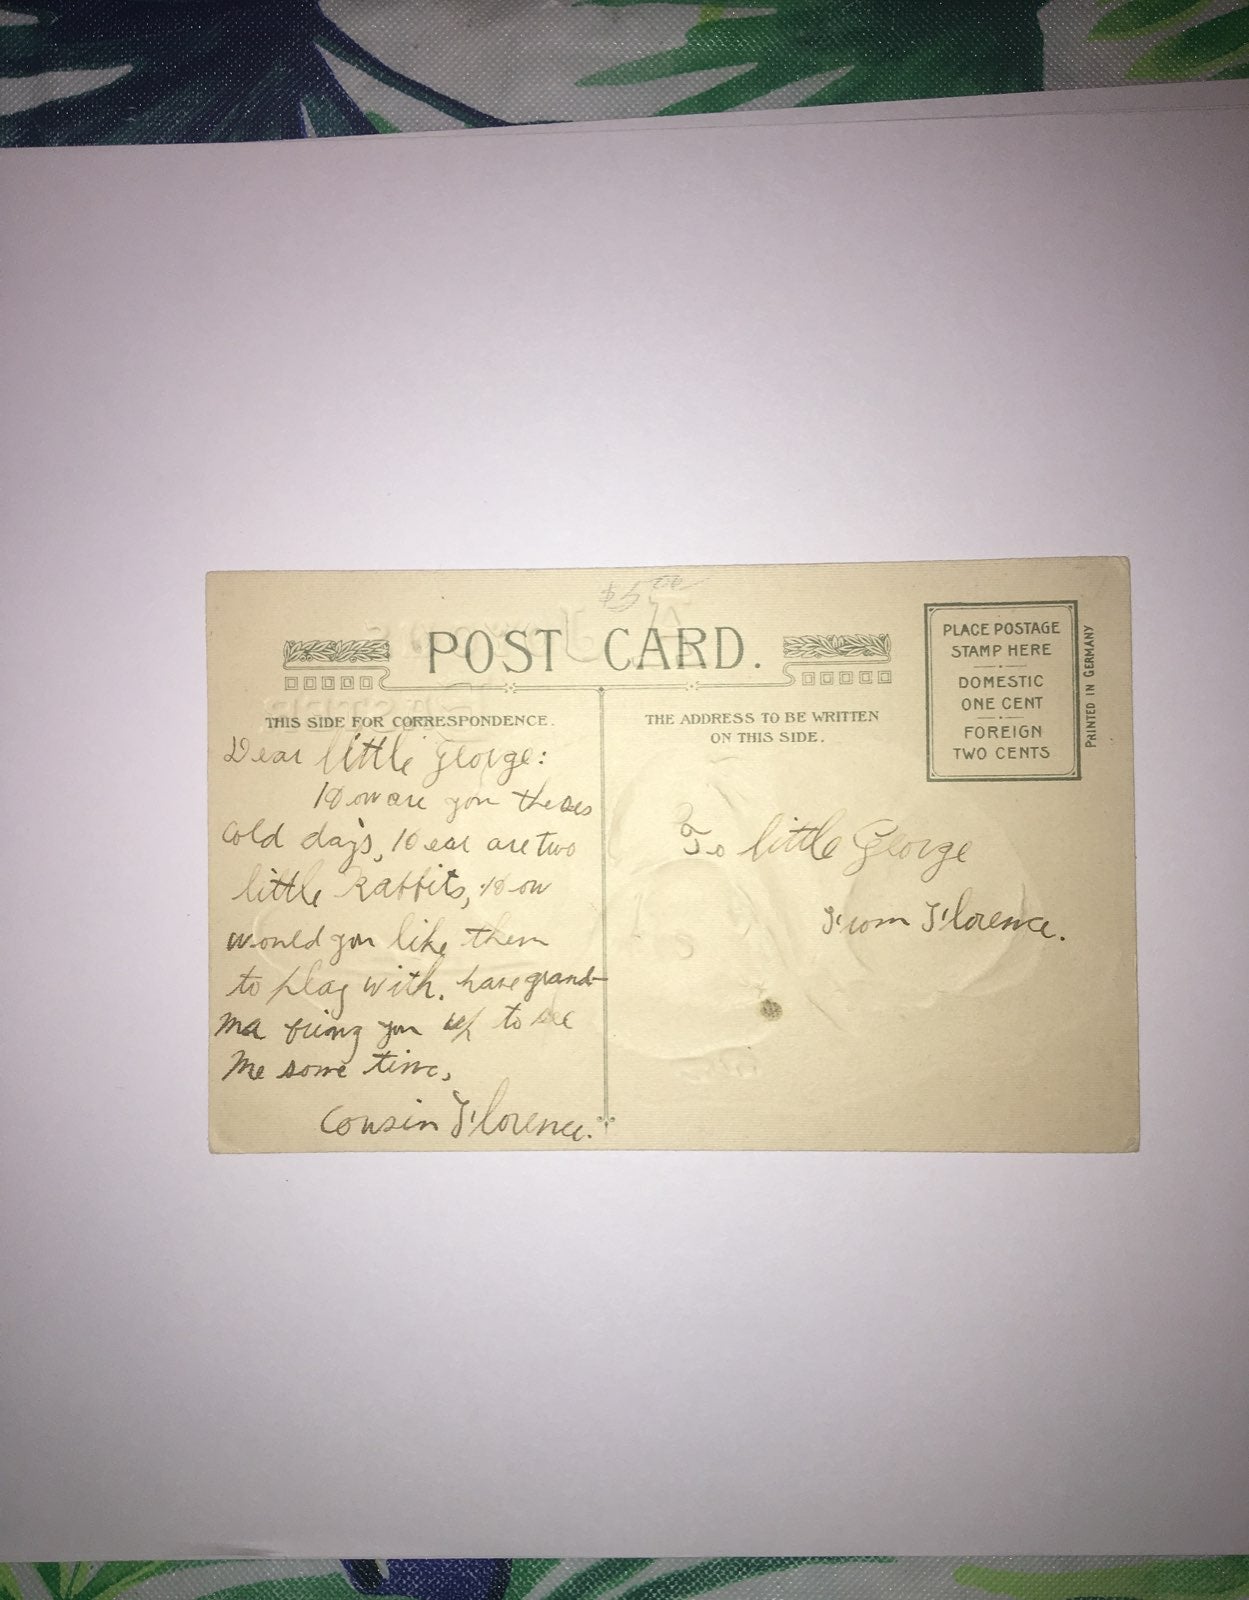 POST CARD.
THIS SIDE FOR CORRESPONDENCE.
Dear little George:
How are you theses
cold days, Hear are two
little Rabbits, How
would you like them
to play with. have grand-
ma bring you up to see
me some time,
Cousin Florence.
THE ADDRESS TO BE WRITTEN
ON THIS SIDE.
To little George
From Florence.
PLACE POSTAGE
STAMP HERE
DOMESTIC
ONE CENT
FOREIGN
TWO CENTS
PRINTED IN GERMANY